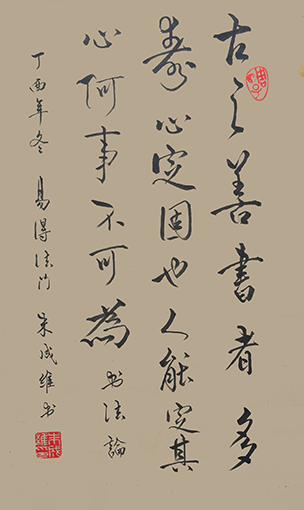 古之善書者多
壽心定固也人能定其
心何事不可為 書法論
丁酉年冬 易得法門 朱成維书